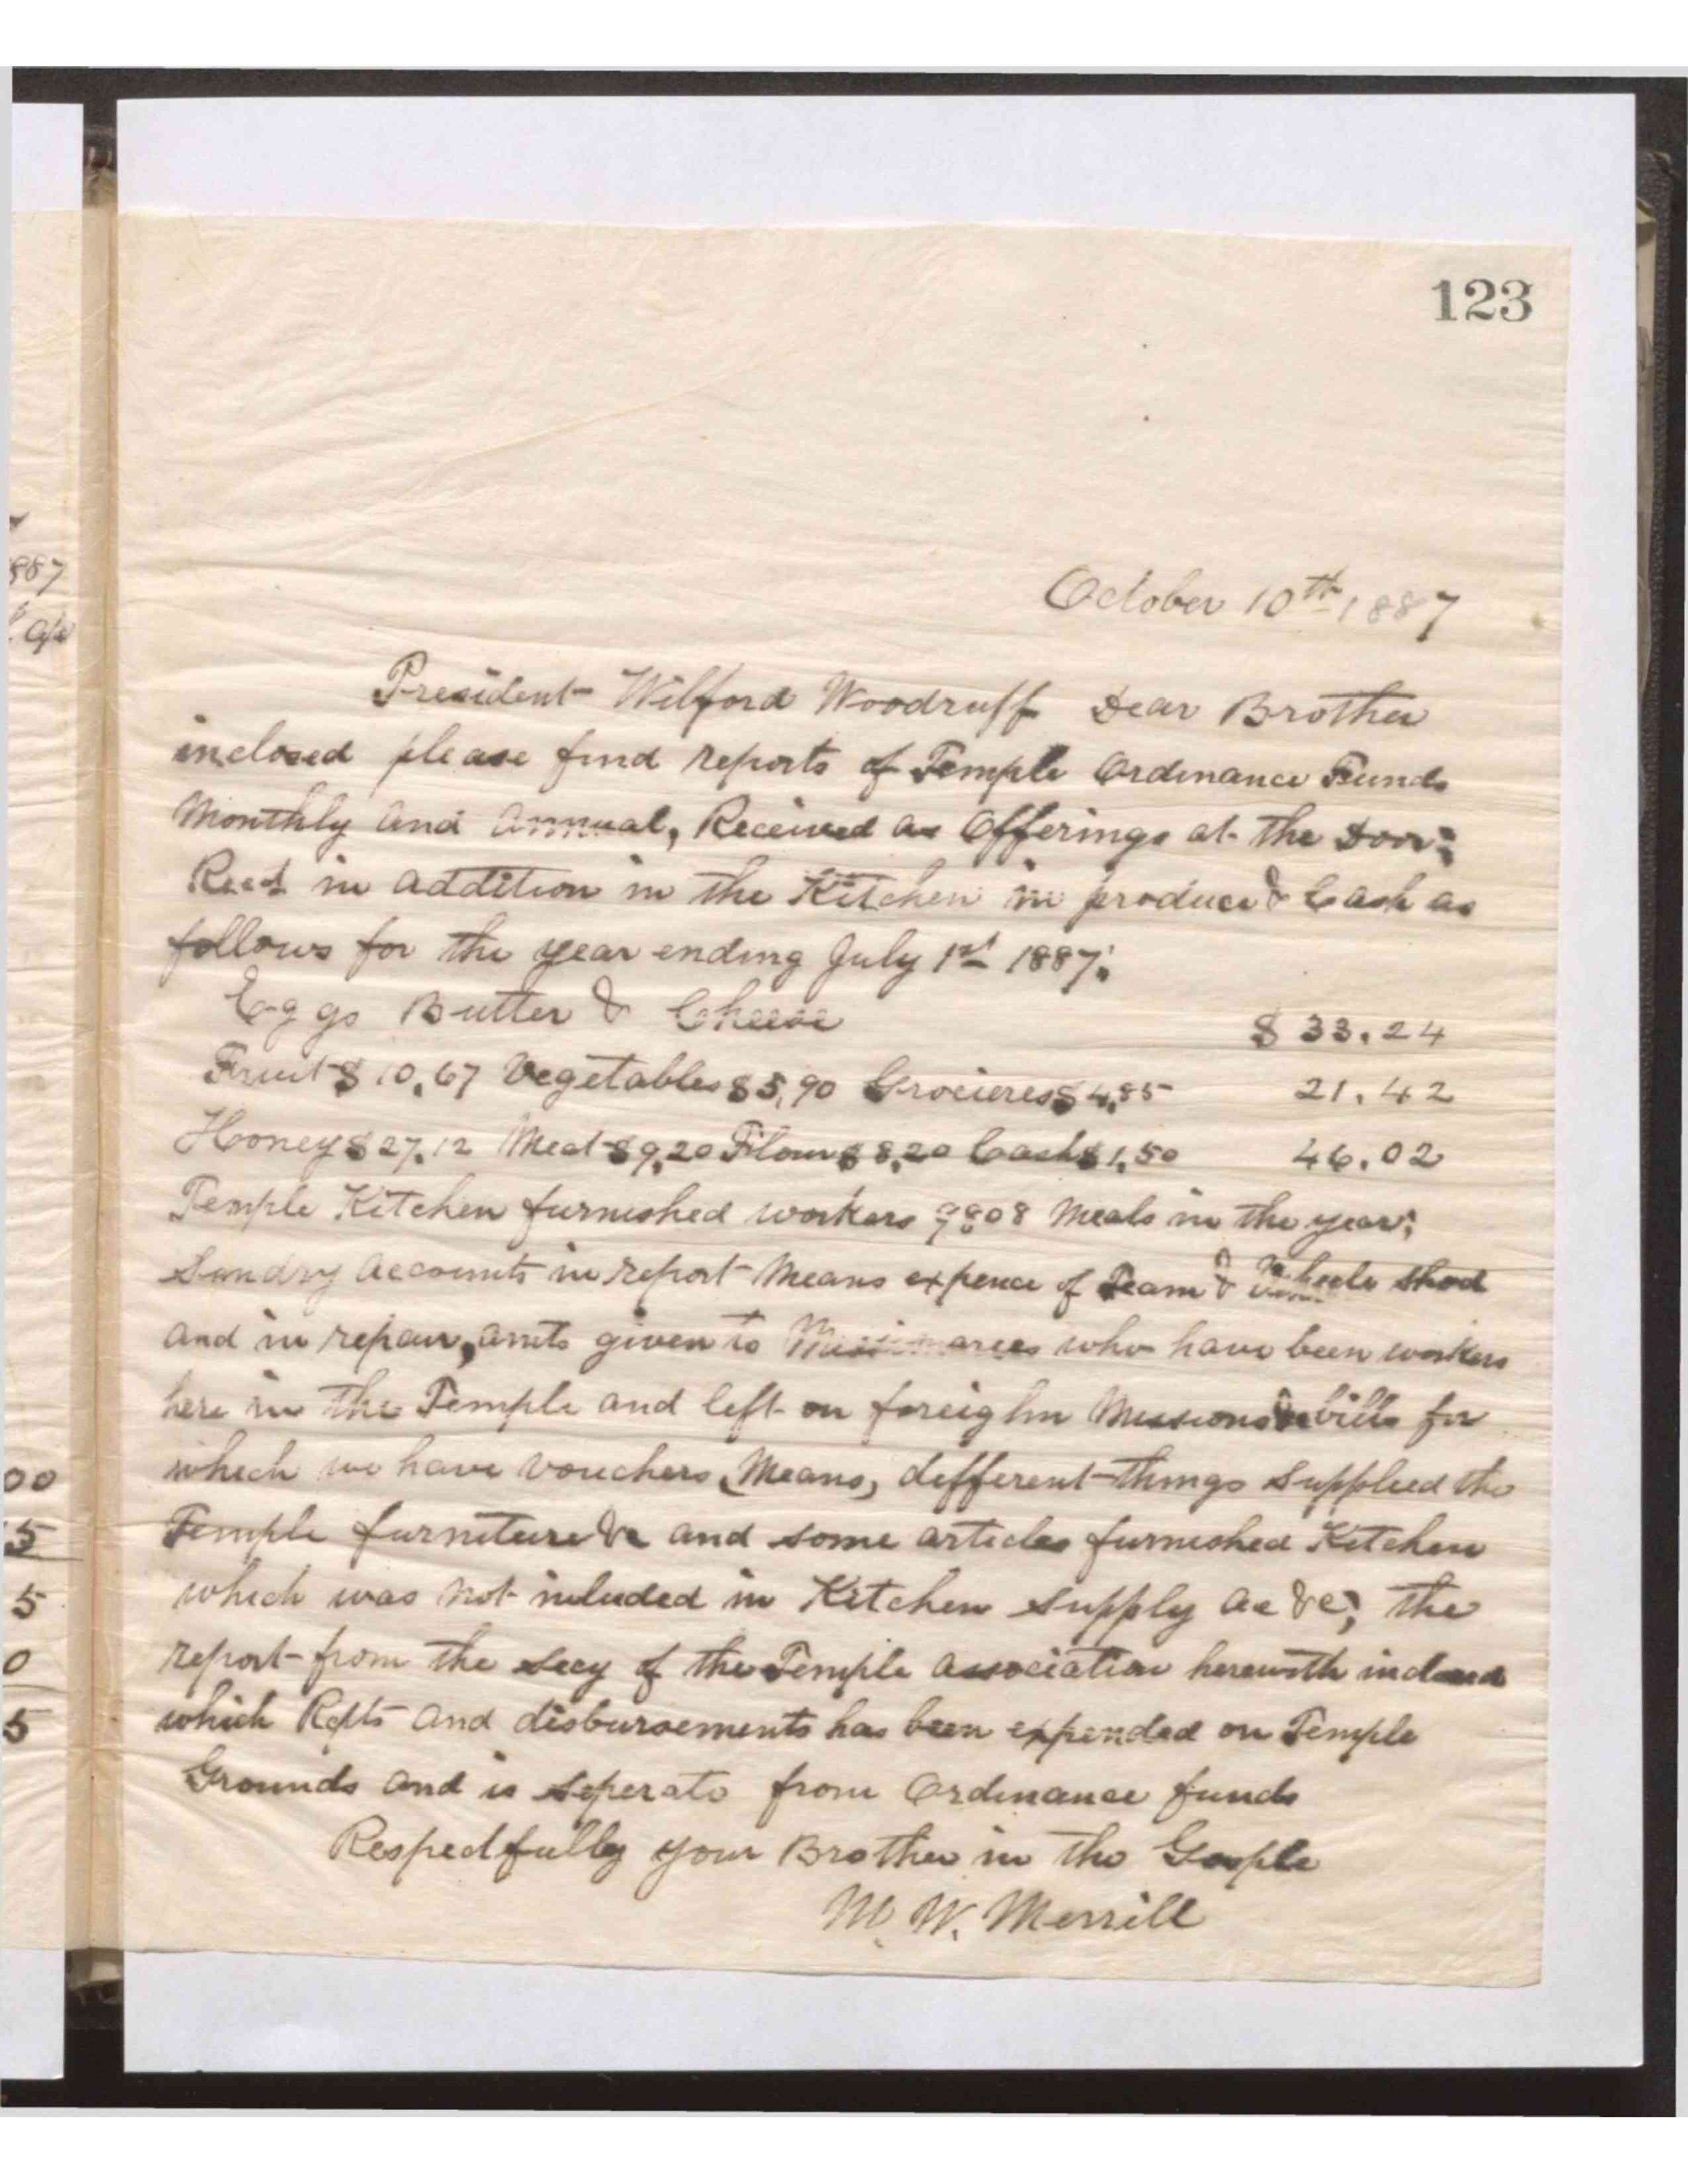 123
October 10th 1887
President Wilford Woodruff Dear Brother
inclosed please find reports of Temple Ordinance Funds
Monthly and Annual, Received as Offerings at the Door;
Recd in addition in the Kitchen in produce & Cash as
follows for the year ending July 1st 1887;
Eggs Butter & Cheese $ 33.24
Fruit $ 10.67 Vegetables $5,90 Grocieres $4,85 21.42
Honey $ 27.12 Meat $9,20 Flour $8,20 Cash $1,50 46.02
Temple Kitchen furnished workers 9808 Meals in the year;
Sundry Accounts in report Means expence of Team & shod
and in repair, amts given to Missionarees who have been workers
here in the Temple and left on foreighn Missions & bills for
which we have vouchers, Means, defferent things supplied the
Temple furniture &c and some articles furnished Kitchen
which was not included in Kitchen supply ac &c; the
report from the Secy of the Temple Association herewith inclosed
which Repts and disbursements has been expended on Temple
Grounds and is seperate from Ordinance funds
Respectfully your Brother in the Gosple
M. W. Merrill
887
00
5
5
0
5